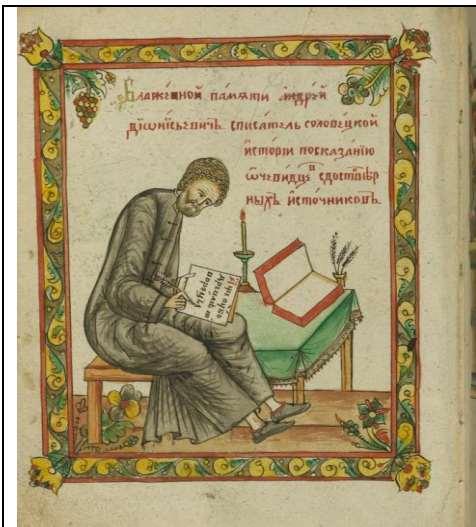 Блаже́нной па́мяти андре́й
дїѡни́сьевичь. списа́тель солове́цкой
и҆сто́рїи посказа́нїю
ѡ҆чеви́дцевъ и҆ здостовѣр
ныхъ и҆сто́чниковъ.